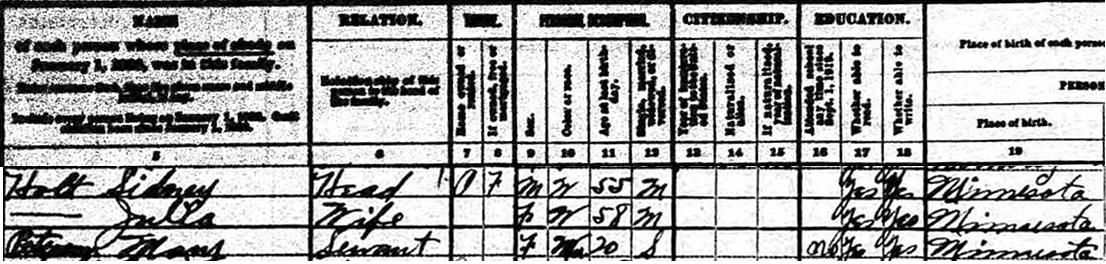 NAME RELATION. CITIZENSHIP. EDUCATION.
of each person whose place of abode on
January 1, 1920, was in this family.
Relationship of this person to the head of the family.
Home owned or rented.
If owned, free or mortgaged.
Sex.
Color or race.
Age at last birthday.
Naturalized or alien.
Attended school any time since Sept. 1, 1919.
Whether able to read.
Whether able to write.
Place of birth of each person
PERSON
Place of birth.
5 6 7 8 9 10 11 12 13 14 15 16 17 18 19
Holt Sidney Head 1 O F M W 55 M Yes Yes Minnesota
— Julia Wife F W 58 M Yes Yes Minnesota
Mary Servant F 20 S no Yes Yes Minnesota